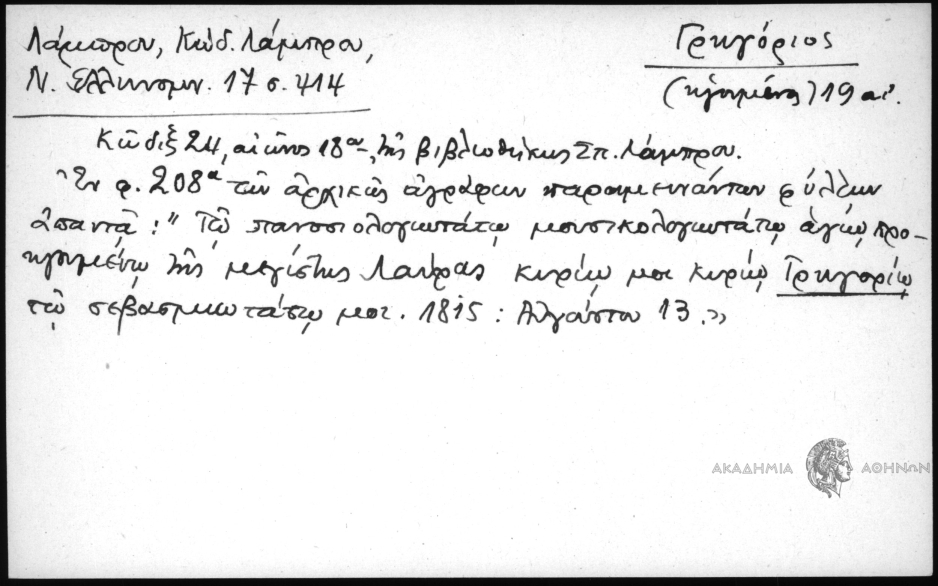 Λάμπρου, Κώδ. Λάμπρου,
Ν. Ελληνομν. 17 σ. 414
Γρηγόριος
(ηγούμενος) 19 αι.
Κῶδιξ 24, αἰῶνος 18ου, τῆς βιβλιοθήκης Σπ. Λάμπρου.
Ἐν φ. 208α τῶν ἀρχικῶς ἀγράφων παραμεινάντων φύλλων
ἀπαντᾷ: "Τῷ πανοσιολογιωτάτῳ μουσικολογιωτάτῳ ἁγίῳ προ-
ηγουμένῳ τῆς μεγίστης Λαύρας κυρίῳ μοι κυρίῳ Γρηγορίῳ
τῷ σεβασμιωτάτῳ μοι. 1815: Αὐγούστου 13.»
ΑΚΑΔΗΜΙΑ ΑΘΗΝΩΝ